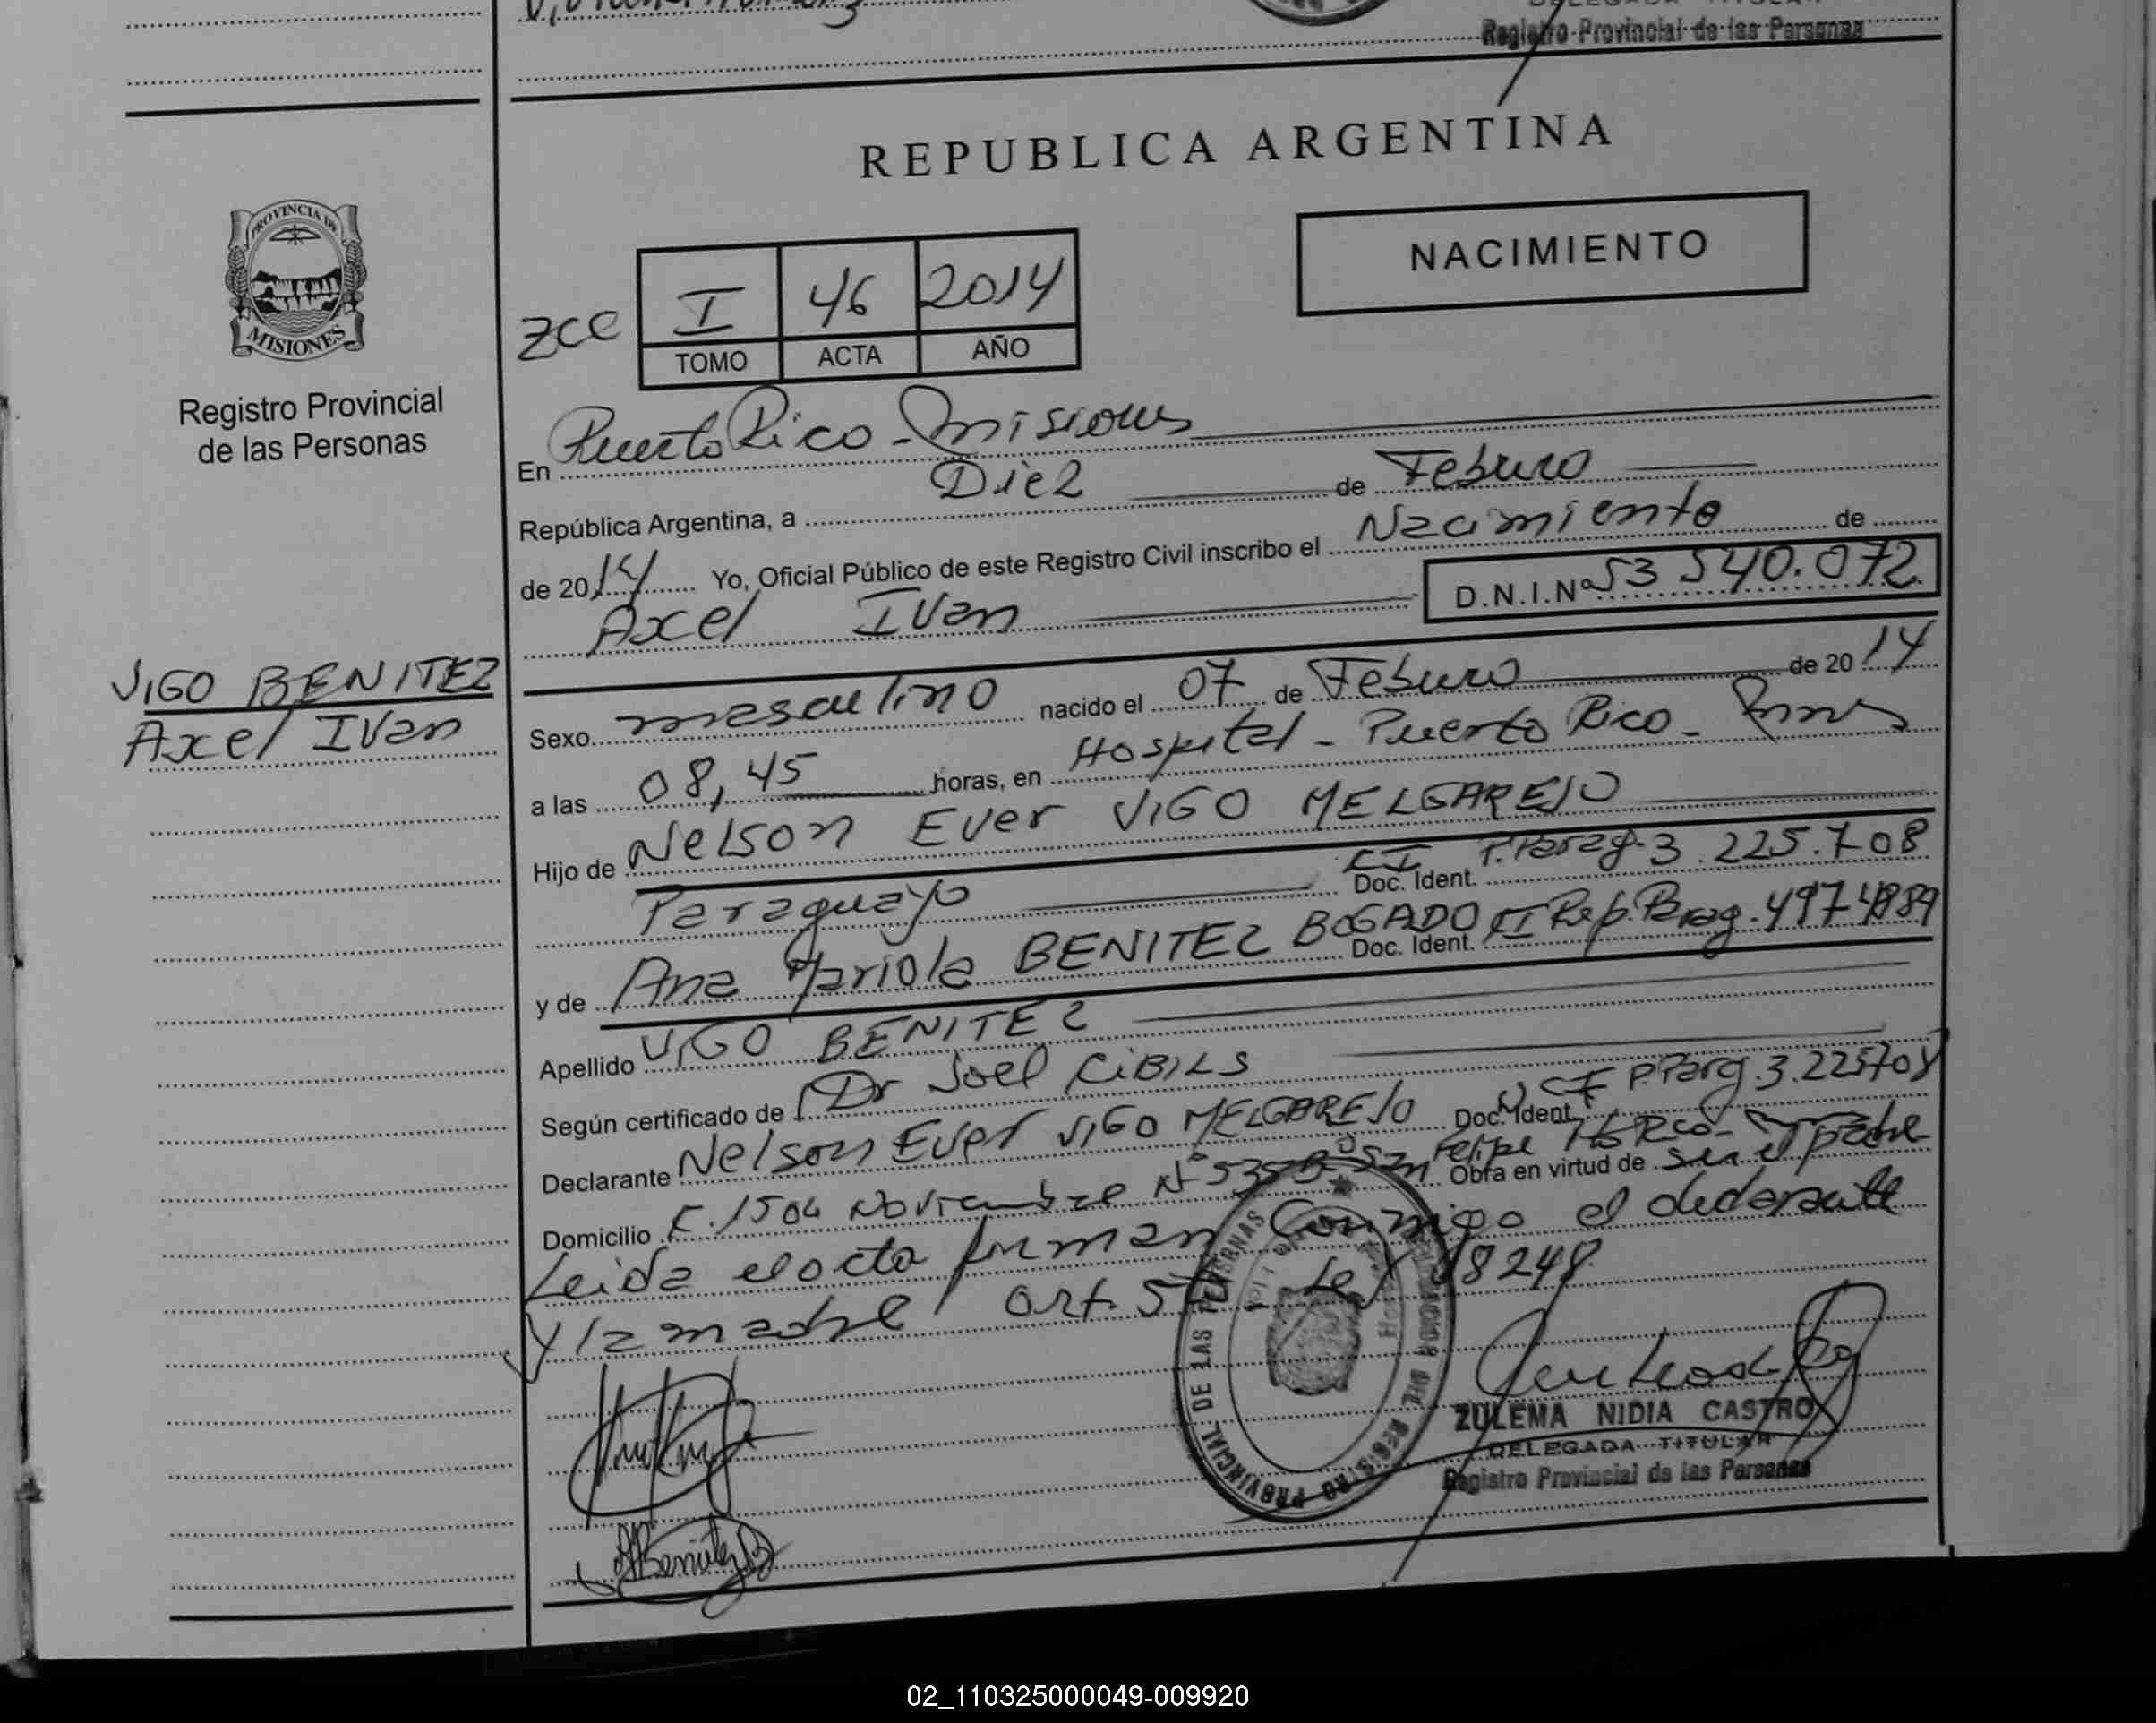 Registro Provincial de las Personas
REPUBLICA ARGENTINA
NACIMIENTO
PROVINCIA DE
MISIONES
Registro Provincial
de las Personas
zce I 46 2014
TOMO ACTA AÑO
En Puerto Rico - Misiones
República Argentina, a Diez de Febrero
de 2014 Yo, Oficial Público de este Registro Civil inscribo el Nacimiento de
Axel Ivan D.N.I.Nº 53 540.072
VIGO BENITEZ
Axel Ivan
Sexo masculino nacido el 07 de Febrero de 2014
a las 08,45 horas, en Hospital - Puerto Rico -
Hijo de Nelson Ever VIGO MELGAREJO
Paraguayo Doc. Ident. CI P. Parag. 3.225.708
y de Ana Mariola BENITEZ BOGADO Doc. Ident. CI Rep. Parag.
Apellido VIGO BENITEZ
Según certificado de Dr Joel CIBILS
Declarante Nelson Ever VIGO MELGAREJO Doc. Ident. CI P. Parg. 3.225708
Domicilio Noviembre Nº San Felipe Pto Rico - Obra en virtud de ser el padre
Leida el acta firman conmigo el declarante
y la madre Art. Ley 18248
REGISTRO PROVINCIAL DE LAS PERSONAS
ZULEMA NIDIA CASTRO
DELEGADA TITULAR
Registro Provincial de las Personas
02_110325000049-009920